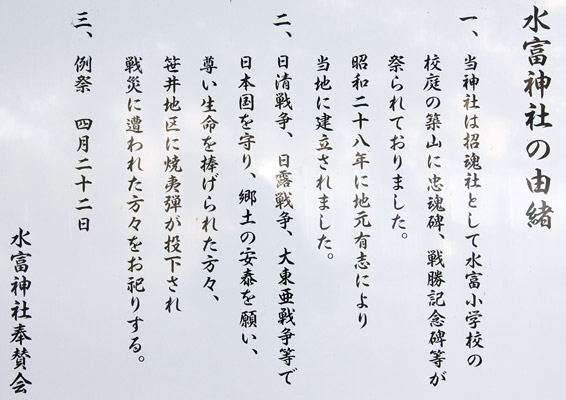 水富神社の由緒
一、当神社は招魂社として水富小学校の
校庭の築山に忠魂碑、戦勝記念碑等が
祭られておりました。
昭和二十八年に地元有志により
当地に建立されました。
二、日清戦争、日露戦争、大東亜戦争等で
日本国を守り、郷土の安泰を願い、
尊い生命を捧げられた方々、
笹井地区に焼夷弾が投下され
戦災に遭われた方々をお祀りする。
三、例祭　四月二十二日
水富神社奉賛会